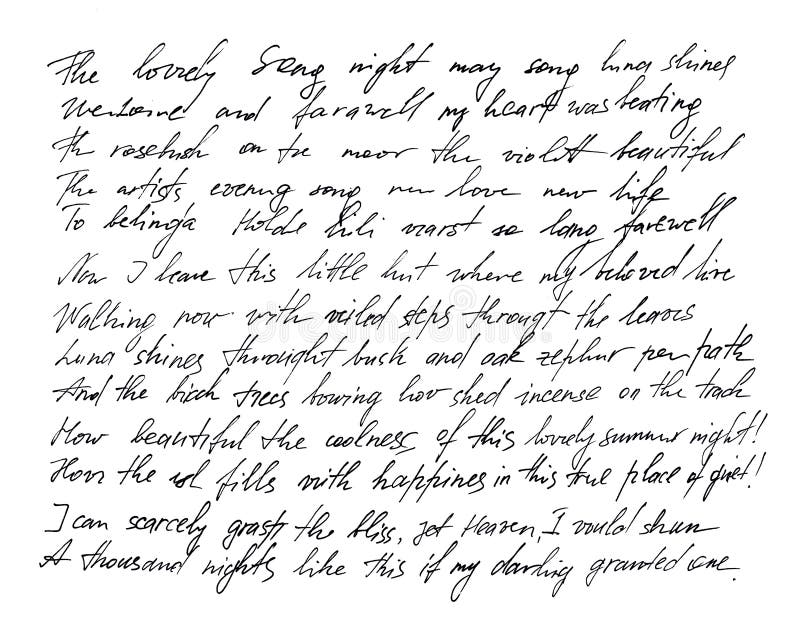 The lovely Song night may song luna shines
Welcome and farawell my heart was beating
Th rosebush on the moor the violett beautiful
The artists evening song new love new life
To belinda Holde Lili warst so long farewell
Now I leave this little hut where my beloved live
Walking now with veiled steps througt the leaves
Luna shines throught bush and oak zephur per path
And the birch trees bowing hov shed incense on the track
How beautiful the coolness of this lovely summer night!
How the soul fills with happines in this true place of quiet!
I can scarcely grasp the bliss, yet Heaven, I would shun
A thousand nights like this if my darling granted one.